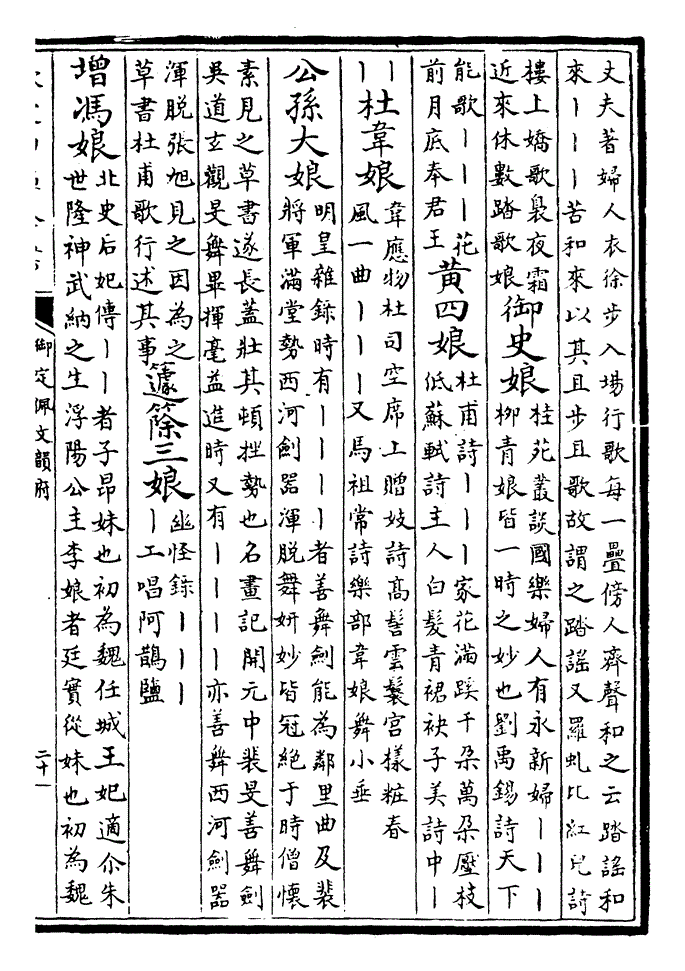 丈夫著婦人衣徐步入場行歌每一疊傍人齊聲和之云踏謡和
來丨丨丨苦和來以其且步且歌故謂之踏謡又羅虬比紅兒詩
樓上嬌歌裊夜霜
近來休數踏歌娘
御史娘
桂苑叢談國樂婦人有永新婦丨丨丨
柳青娘皆一時之妙也劉禹錫詩天下
能歌丨丨丨花
前月底奉君王
黄四娘
杜甫詩丨丨丨家花滿蹊千朶萬朶壓枝
低蘇軾詩主人白髮青裙袂子美詩中丨
丨
丨
杜韋娘
韋應物杜司空席上贈妓詩高髻雲鬟宮樣粧春
風一曲丨丨丨又馬祖常詩樂部韋娘舞小垂
公孫大娘
明皇雜録時有丨丨丨丨者善舞劍能為鄰里曲及裴
將軍滿堂勢西河劍器渾脱舞妍妙皆冠絶于時僧懷
素見之草書遂長蓋壯其頓挫勢也名畫記開元中裴旻善舞劍
吳道玄觀旻舞畢揮毫益進時又有丨丨丨丨亦善舞西河劍器
渾脱張旭見之因為之
草書杜甫歌行述其事
籧篨三娘
幽怪録丨丨丨
丨工唱阿鵲鹽
增馮娘
北史后妃傳丨丨者子昂妹也初為魏任城王妃適尒朱
世隆神武納之生浮陽公主李娘者廷實從妹也初為魏
御定佩文韻府
二十一